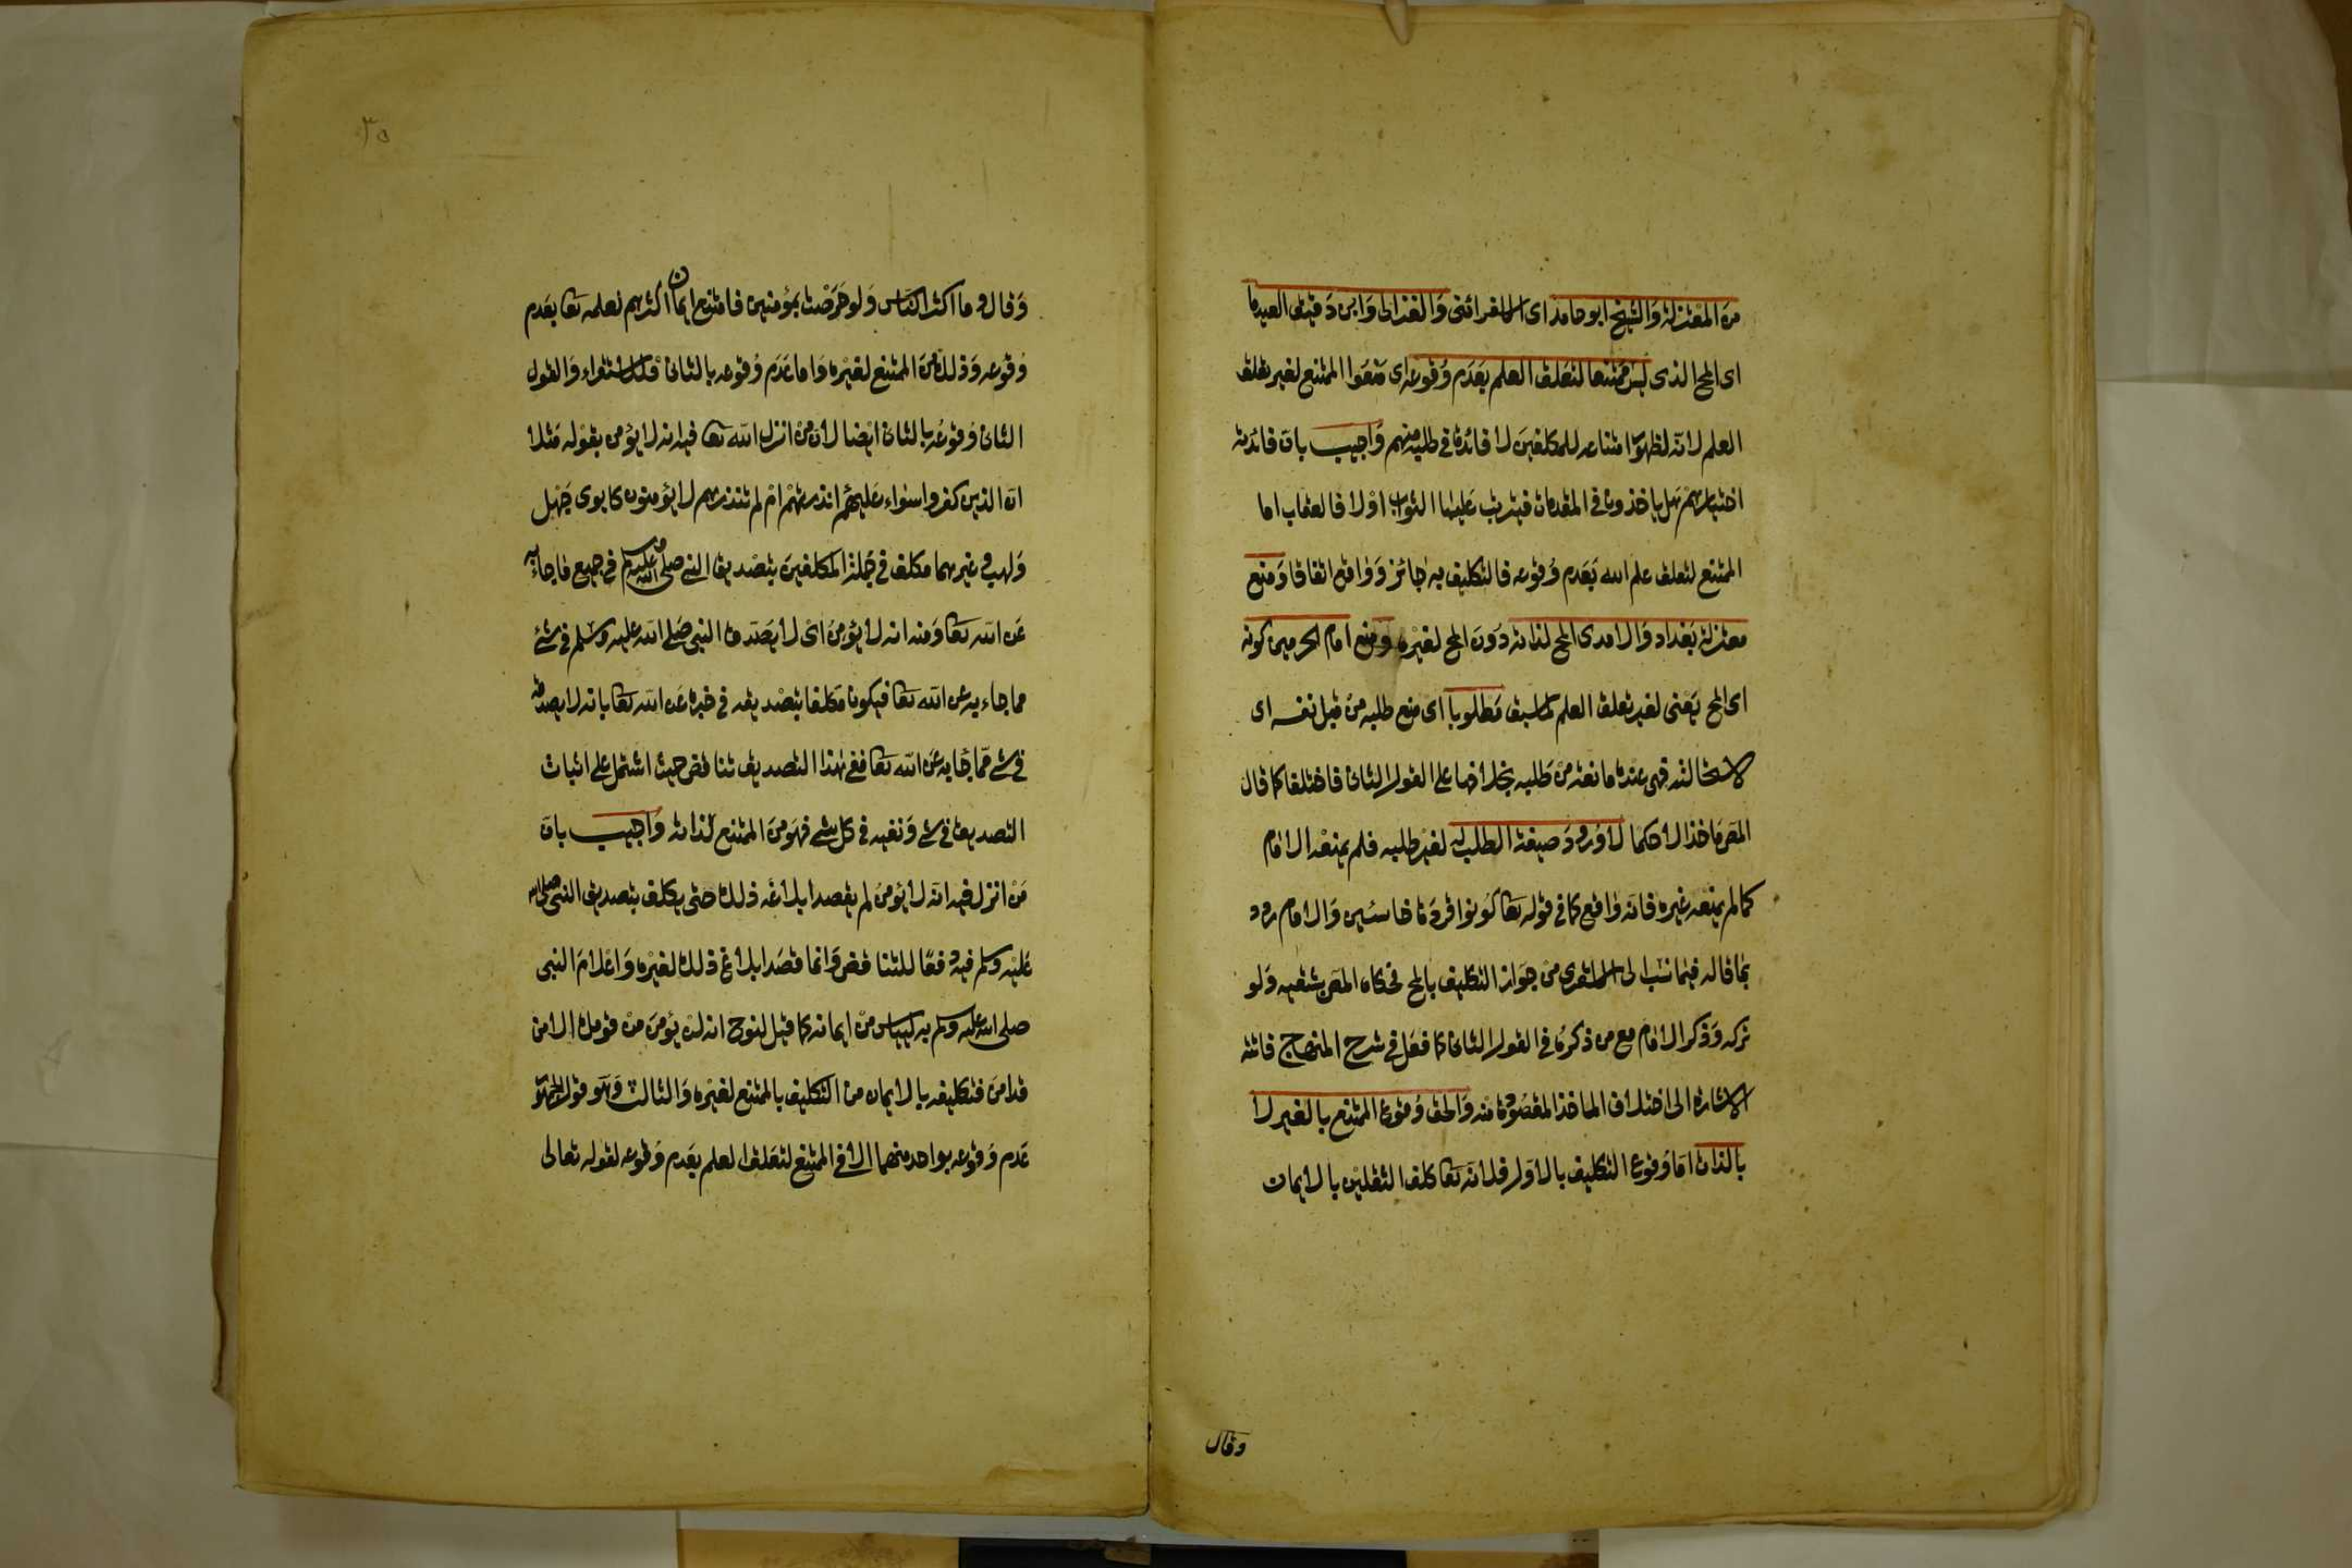 من المعتزلة والشيخ ابو حامد اى الاسفرائنى والغزالى وابن دقيق العيد ما
اى المح الذى ليس ممتنعا لتعلق العلم بعدم وقوعه اى منعوا الممتنع لغير تعلق
العلم لانه لظهور امتناعه للمكلفين لا فائدة فى طلبه منهم واجيب بان فائدته
اختبارهم هل ياخذون فى المقدمات فيترتب عليها الثواب اولا فالعقاب اما
الممتنع لتعلق علم الله بعدم وقوعه فالتكليف به جائز وواقع اتفاقا ومنع
معتزلة بغداد والامدى المح لذاته دون المح لغيره ومنع امام الحرمين كونه
اى المح يعنى لغير تعلق العلم كما سبق مطلوبا اى منع طلبه من قبل نفسه اى
لاستحالته فهى عنده مانعة من طلبه بخلافها على القول الثانى فاختلفا كما قال
المص ماخذا لا حكما لا ورود صيغة الطلب له لغير طلبه فلم يمنعه الامام
كما لم يمنعه غيره فانه واقع كما فى قوله تعا كونوا قردة خاسئين والامام ردد
بما قاله فيما نسب الى الاشعرى من جواز التكليف بالمح فحكاه المص بشقيه ولو
تركه وذكر الامام مع من ذكره فى القول الثانى كما فعل فى شرح المنهاج فاتته
الاشارة الى اختلاف الماخذ المقصودة منه والحق وقوع الممتنع بالغير لا
بالذات اما وقوع التكليف بالاول فلانه تعا كلف الثقلين بالايمان
وقال
٣٥
وقال وما اكثر الناس ولو حرصت بمؤمنين فامتنع ايمان اكثرهم لعلمه تعا بعدم
وقوعه وذلك من الممتنع لغيره واما عدم وقوعه بالثانى فللاستقراء والقول
الثانى وقوعه بالثانى ايضا لان من انزل الله تعا فيه انه لا يؤمن بقوله مثلا
ان الذين كفروا سواء عليهم ءانذرتهم ام لم تنذرهم لا يؤمنون كابوى جهل
ولهب وغيرهما مكلف فى جملة المكلفين بتصديق النبى صلى الله عليه وسلم فى جميع ما جاء به
عن الله تعا ومنه انه لا يؤمن اى لا يصدق النبى صلى الله عليه وسلم فى شئ
مما جاء به عن الله تعا فيكون مكلفا بتصديقه فى خبره عن الله تعا بانه لا يصدقه
فى شئ مما جاء به عن الله تعا ففى هذا التصديق تناقض حيث اشتمل على اثبات
التصديق فى شئ ونفيه فى كل شئ فهو من الممتنع لذاته واجيب بان
من انزل فيه انه لا يؤمن لم يقصد ابلاغه ذلك حتى يكلف بتصديق النبى صلى الله
عليه وسلم فيه دفعا للتناقض وانما قصد ابلاغ ذلك لغيره واعلام النبى
صلى الله عليه وسلم به لييأس من ايمانه كما قيل لنوح انه لن يؤمن من قومك الا من
قد امن فتكليفه بالايمان من التكليف بالممتنع لغيره والثالث وهو قول الجمهور
عدم وقوعه بواحد منهما الا فى الممتنع لتعلق العلم بعدم وقوعه لقوله تعالى